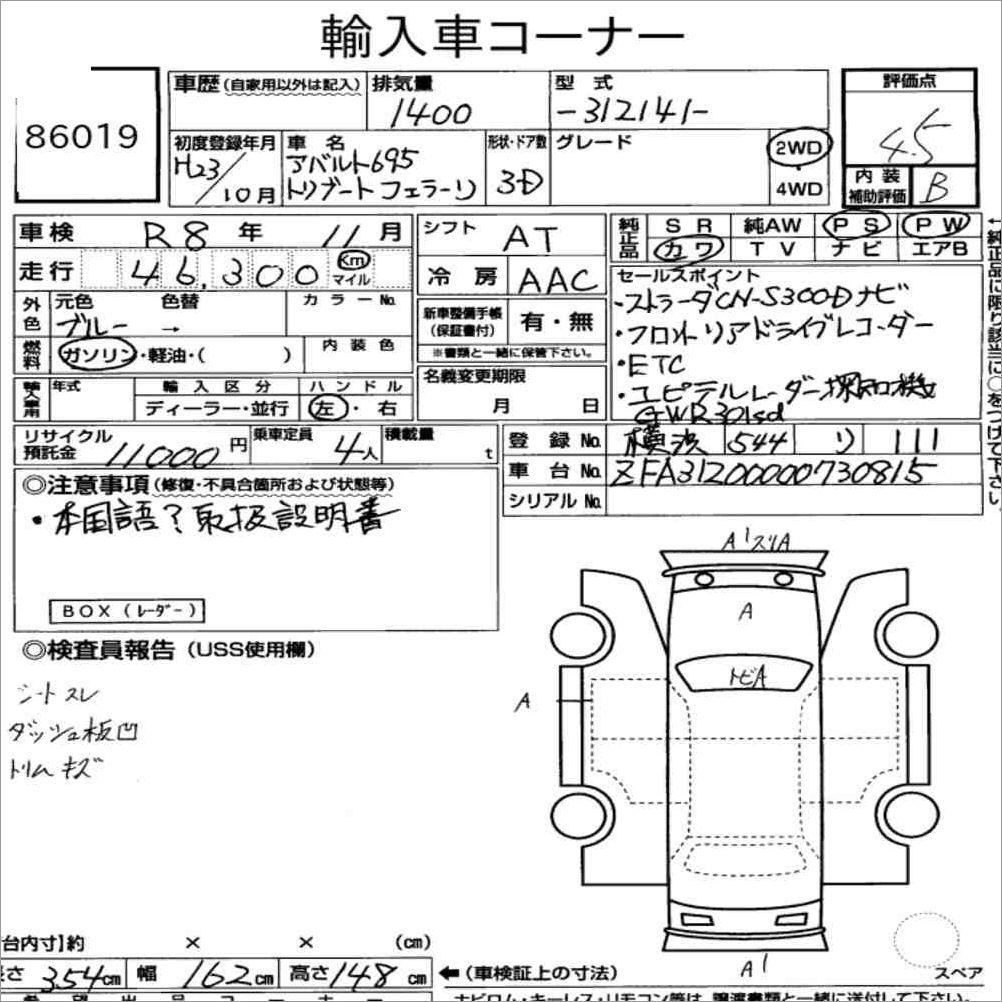 輸入車コーナー
86019
車歴(自家用以外は記入) 排気量 型式 評価点
1400 -312141- 4.5
初度登録年月 車名 形状・ドア数 グレード 2WD
H23/10月 アバルト695 3-D 4WD
トリブートフェラーリ
内装補助評価 B
車検 R8年 11月 シフト AT 純正品 SR 純AW PS PW
カワ TV ナビ エアB
走行 46,300 km マイル 冷房 AAC
セールスポイント
・ストラーダCN-S300Dナビ
・フロントリアドライブレコーダー
・ETC
・ユピテルレーダー探知機
GWR301sd
外色 元色 色替 カラーNo.
ブルー →
新車整備手帳(保証書付) 有・無
※書類と一緒に保管下さい。
燃料 ガソリン・軽油・( ) 内装色
名義変更期限
月 日
輸入車用 年式 輸入区分 ハンドル
ディーラー・並行 左・右
リサイクル預託金 11000円 乗車定員 4人 積載量 t
登録No. 横浜 544 リ 111
車台No. ZFA31200000730815
シリアルNo.
◎注意事項(修復・不具合箇所および状態等)
・本国語?取扱説明書
BOX(レーダー)
◎検査員報告(USS使用欄)
シートスレ
ダッシュ板凹
トリムキズ
A1スリA
A
トビA
A
A1
スペア
台内寸】約 × × (cm)
長さ 354cm 幅 162cm 高さ 148cm ←(車検証上の寸法)